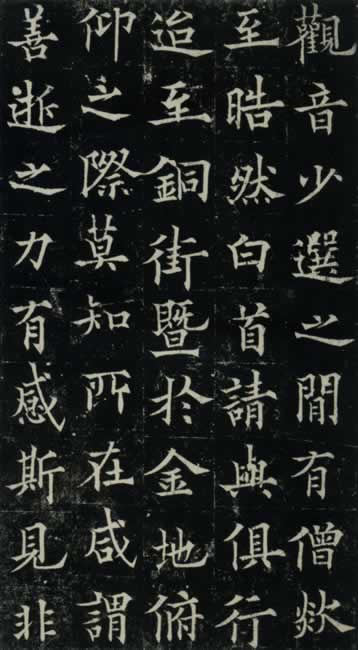 觀音少選之間有僧欻
至晧然白首請與俱行
迨至銅街暨於金地俯
仰之際莫知所在咸謂
善逝之力有感斯見非